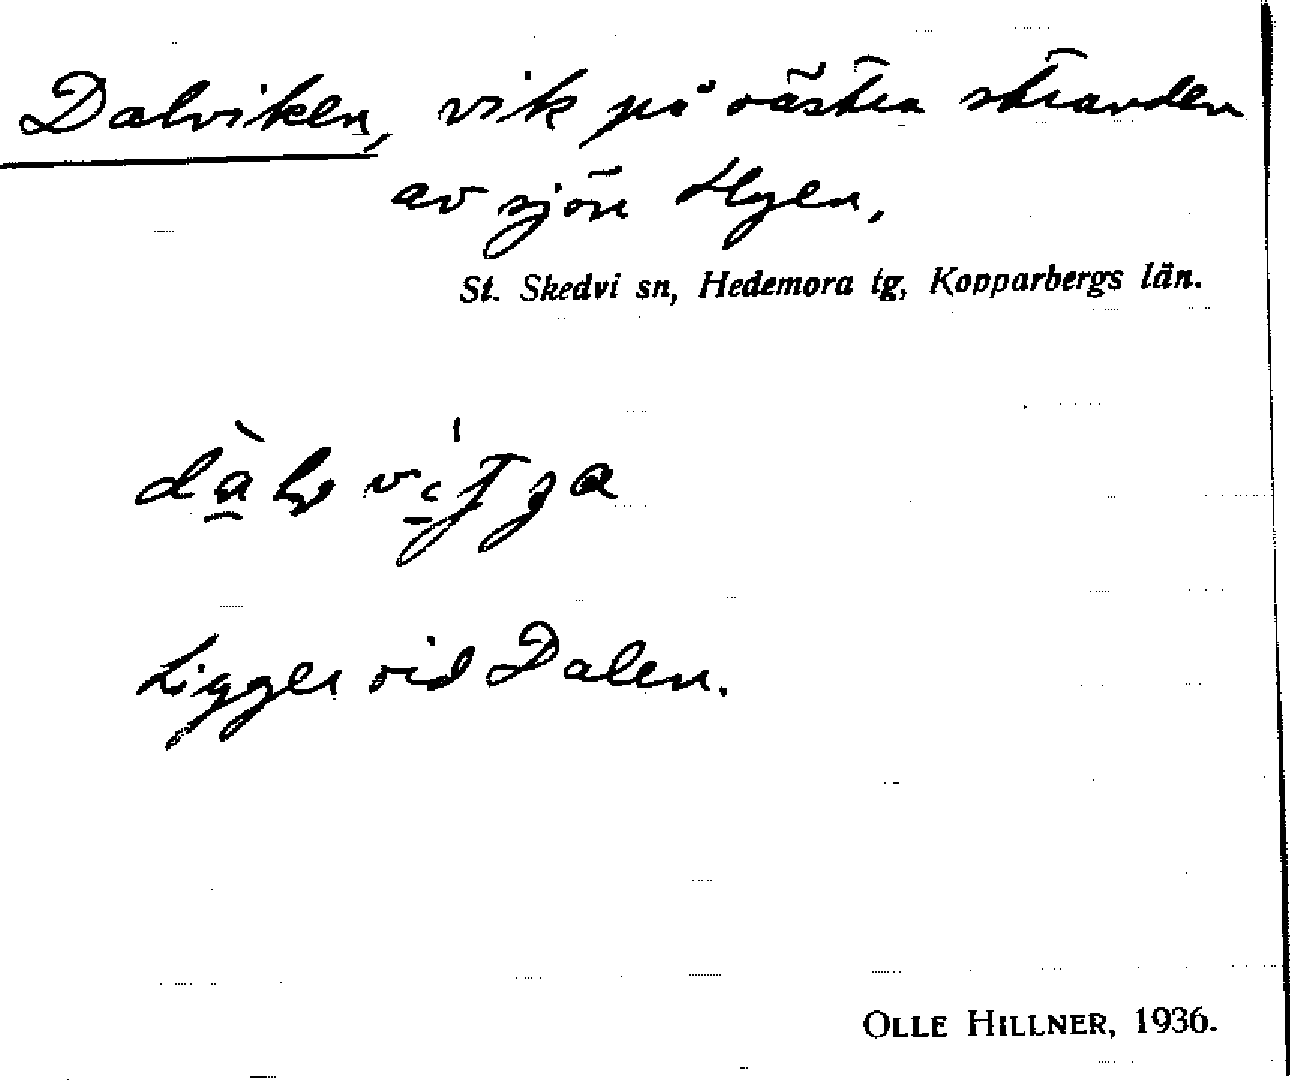 Dalviken, vik på västra stranden
av sjön Hyen,
St. Skedvi sn, Hedemora tg, Kopparbergs län.
Ligger vid Dalen.
OLLE HILLNER, 1936.